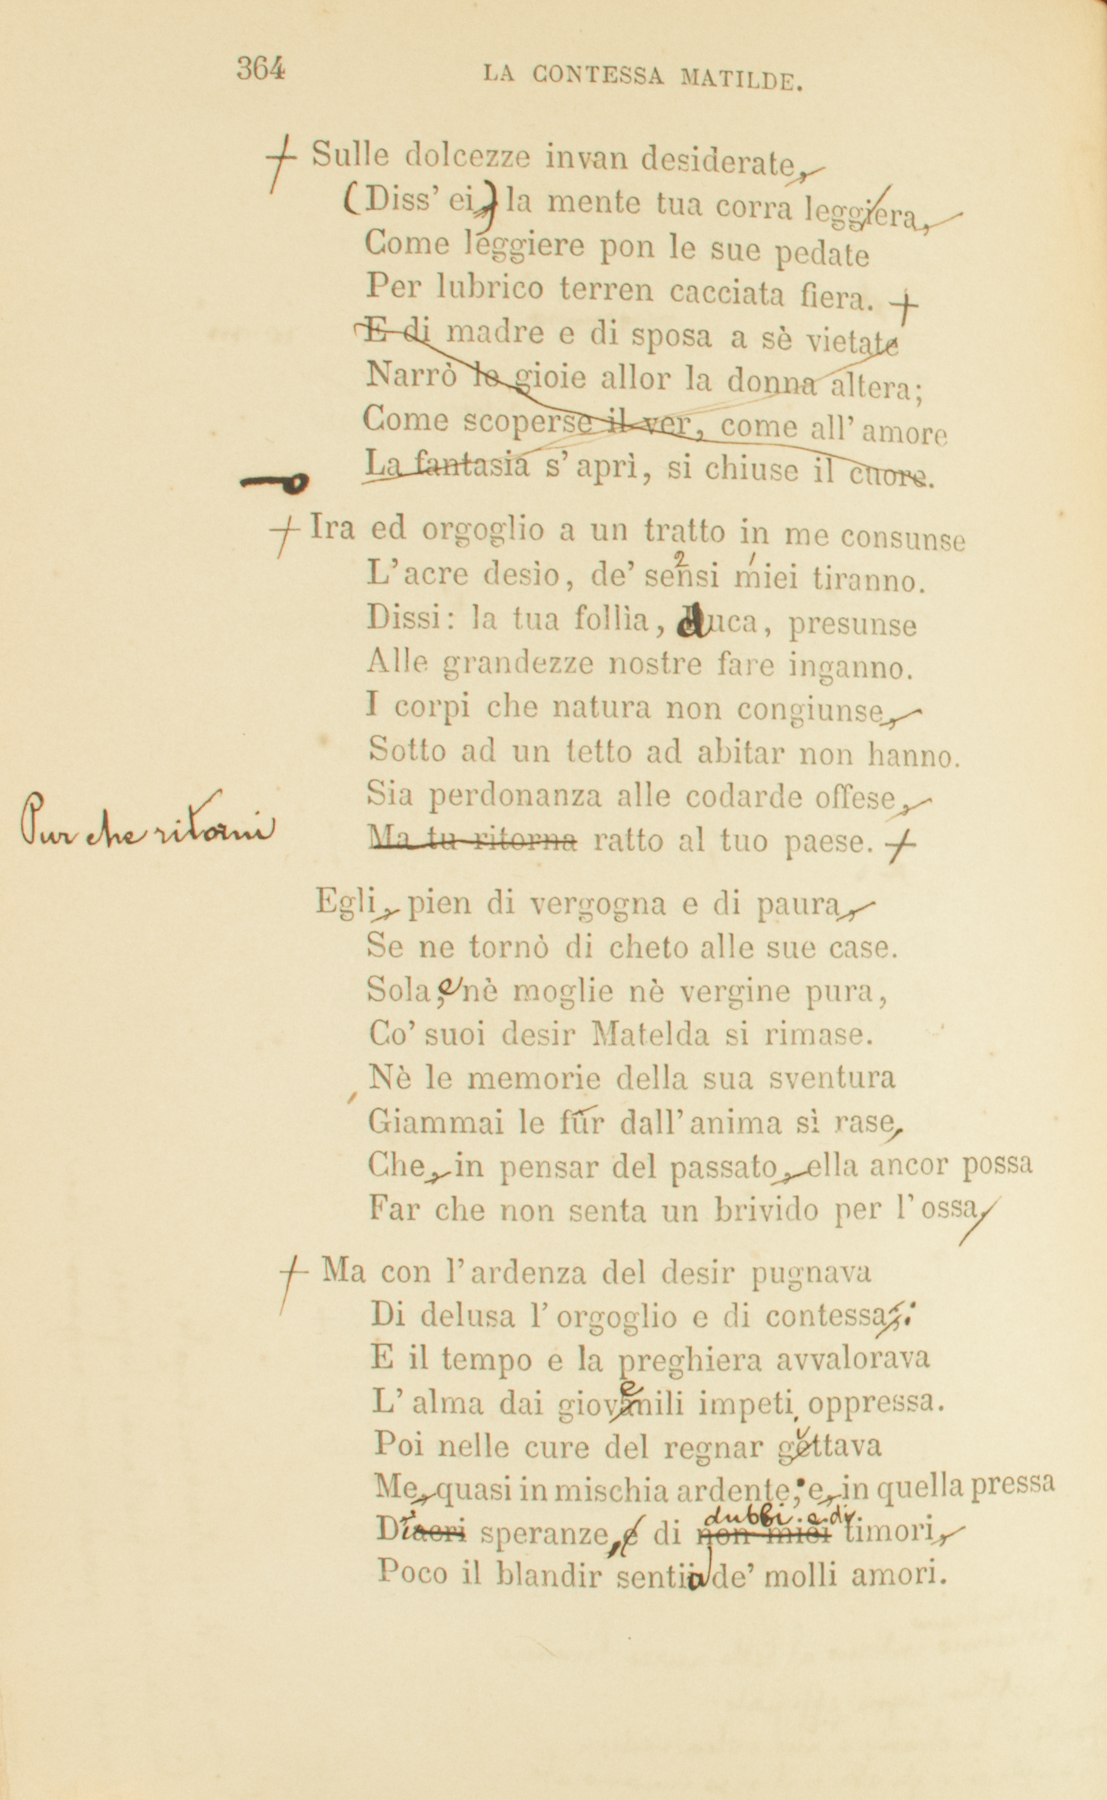 364 LA CONTESSA MATILDE.
Sulle dolcezze invan desiderate,
(Diss' ei,) la mente tua corra leggiera,
Come leggiere pon le sue pedate
Per lubrico terren cacciata fiera. +
E di madre e di sposa a sè vietate
Narrò le gioie allor la donna altera;
Come scoperse il ver, come all' amore
La fantasia s' aprì, si chiuse il cuore.
Ira ed orgoglio a un tratto in me consunse
L' acre desìo, de' sensi miei tiranno.
Dissi: la tua follìa, duca, presunse
Alle grandezze nostre fare inganno.
I corpi che natura non congiunse,
Sotto ad un tetto ad abitar non hanno.
Sia perdonanza alle codarde offese,
Pur che ritorni
Ma tu ritorna ratto al tuo paese. +
Egli, pien di vergogna e di paura,
Se ne tornò di cheto alle sue case.
Sola, e nè moglie nè vergine pura,
Co' suoi desir Matelda si rimase.
Nè le memorie della sua sventura
Giammai le fûr dall' anima sì rase,
Che, in pensar del passato, ella ancor possa
Far che non senta un brivido per l' ossa,
Ma con l' ardenza del desir pugnava
Di delusa l' orgoglio e di contessa;:
E il tempo e la preghiera avvalorava
L' alma dai giovanili impeti oppressa.
Poi nelle cure del regnar gettava
Me, quasi in mischia ardente; e, in quella pressa
dubbi e di
speranze, e di non miei timori,
Poco il blandir sentii de' molli amori.